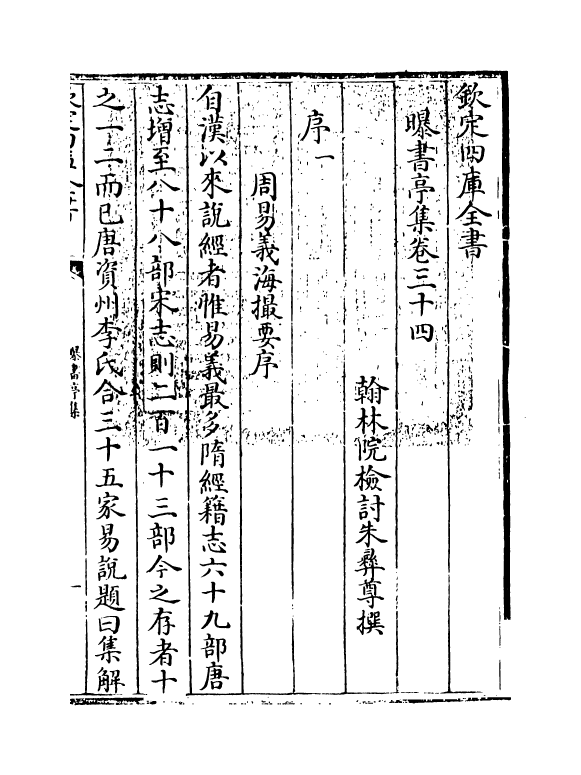 欽定四庫全書
曝書亭集卷三十四
翰林院檢討朱彝尊撰
序一
周易義海撮要序
自漢以來說經者惟易義最多隋經籍志六十九部唐
志增至八十八部宋志則二百一十三部今之存者十
之一二而已唐資州李氏合三十五家易說題曰集解
欽定四庫全書
曝書亭集
一